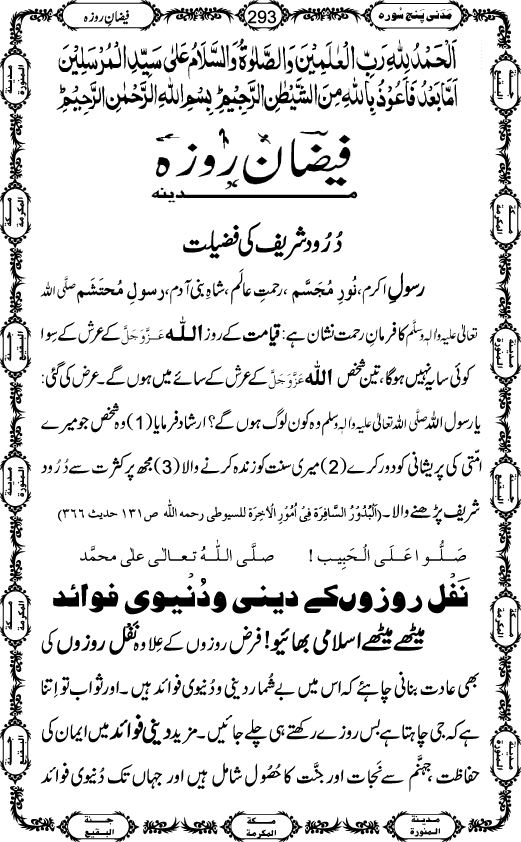 مَدَنی پنج سورہ
293
فیضانِ روزہ
اَلْحَمْدُ لِلّٰہِ رَبِّ الْعٰلَمِیْنَ وَالصَّلٰوۃُ وَالسَّلَامُ عَلٰی سَیِّدِ الْمُرْسَلِیْنَ
اَمَّا بَعْدُ فَاَعُوْذُ بِاللّٰہِ مِنَ الشَّیْطٰنِ الرَّجِیْمِ ؕ بِسْمِ اللّٰہِ الرَّحْمٰنِ الرَّحِیْمِ ؕ
فیضانِ روزہ
مدینہ
دُرُود شریف کی فضیلت
رسولِ اکرم، نُورِ مُجَسَّم، رحمتِ عالم، شاہِ بنی آدم، رسولِ مُحتَشَم صلَّی اللہ
تعالٰی علیہ والہٖ وسلَّم کا فرمانِ رحمت نشان ہے: قیامت کے روز اللہ عَزَّوَجَلَّ کے عرش کے سِوا
کوئی سایہ نہیں ہوگا، تین شخص اللہ عَزَّوَجَلَّ کے عرش کے سائے میں ہوں گے۔ عرض کی گئی:
یا رسول اللہ صلَّی اللہ تعالٰی علیہ والہٖ وسلم وہ کون لوگ ہوں گے؟ ارشاد فرمایا (1) وہ شخص جو میرے
اُمّتی کی پریشانی کو دور کرے (2) میری سنت کو زندہ کرنے والا (3) مجھ پر کثرت سے دُرُود
شریف پڑھنے والا۔ (اَلْبُدُوْرُ السَّافِرَۃ فِیْ اُمُوْرِ الْاٰخِرَۃ للسیوطی رحمہ اللہ ص ۱۳۱ حدیث ۳۶۶)
صَلُّوا عَلَی الْحَبِیب! صلَّی اللہُ تعالٰی علٰی محمَّد
نَفْل روزوں کے دینی ودُنْیوی فوائد
میٹھے میٹھے اسلامی بھائیو! فرض روزوں کے عِلاوہ نَفْل روزوں کی
بھی عادت بنانی چاہئے کہ اس میں بے شُمار دینی و دُنیوی فوائد ہیں۔ اور ثواب تو اِتنا
ہے کہ جی چاہتا ہے بس روزے رکھتے ہی چلے جائیں۔ مزید دینی فوائد میں ایمان کی
حفاظت، جہنَّم سے نَجات اور جنَّت کا حُصُول شامل ہیں اور جہاں تک دُنیوی فوائد
مدینۃ المنورۃ
جنۃ البقیع
مکۃ المکرمۃ
جنۃ البقیع
مکۃ المکرمۃ
مدینۃ المنورۃ
جنۃ البقیع
مدینۃ المنورۃ
مکۃ المکرمۃ
جنۃ البقیع
مدینۃ المنورۃ
جنۃ البقیع
مکۃ المکرمۃ
مدینۃ المنورۃ
جنۃ البقیع
مکۃ المکرمۃ
مدینۃ المنورۃ